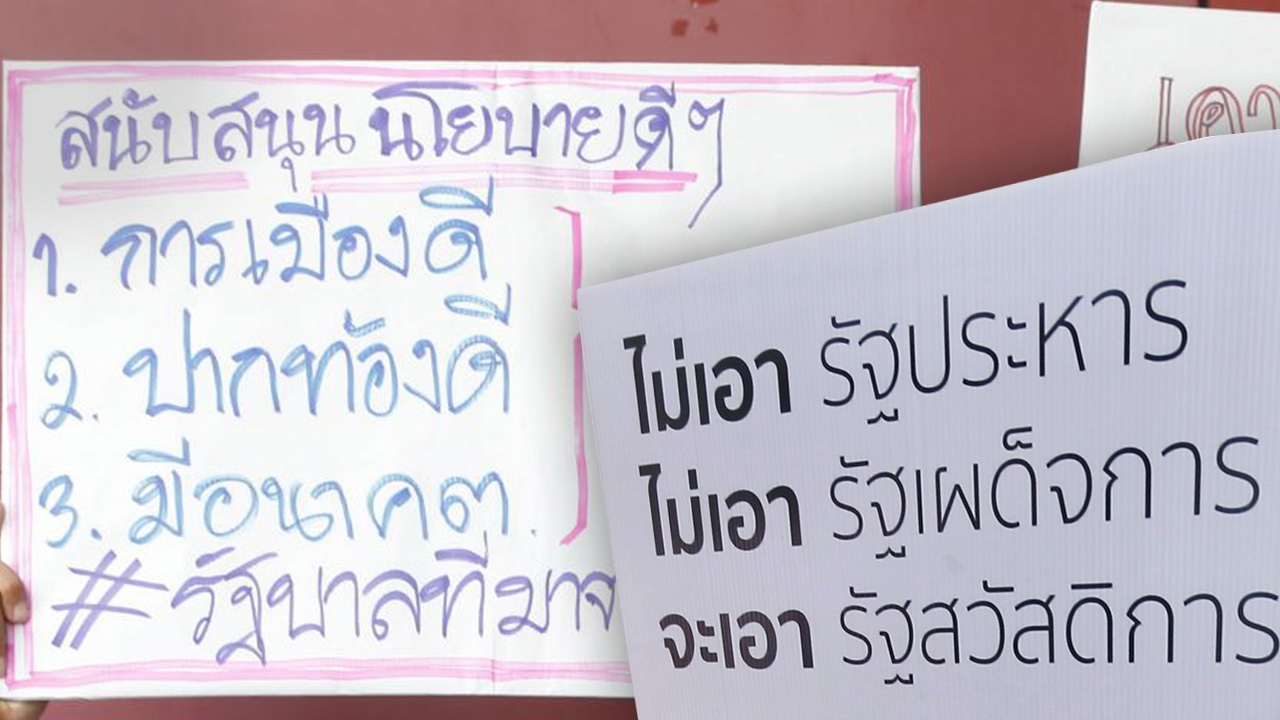 สนับสนุนนโยบายดีๆ
1. การเมืองดี
2. ปากท้องดี
3. มีอนาคต.
#รัฐบาลที่มาจ
ไม่เอา รัฐประหาร
ไม่เอา รัฐเผด็จการ
จะเอา รัฐสวัสดิการ